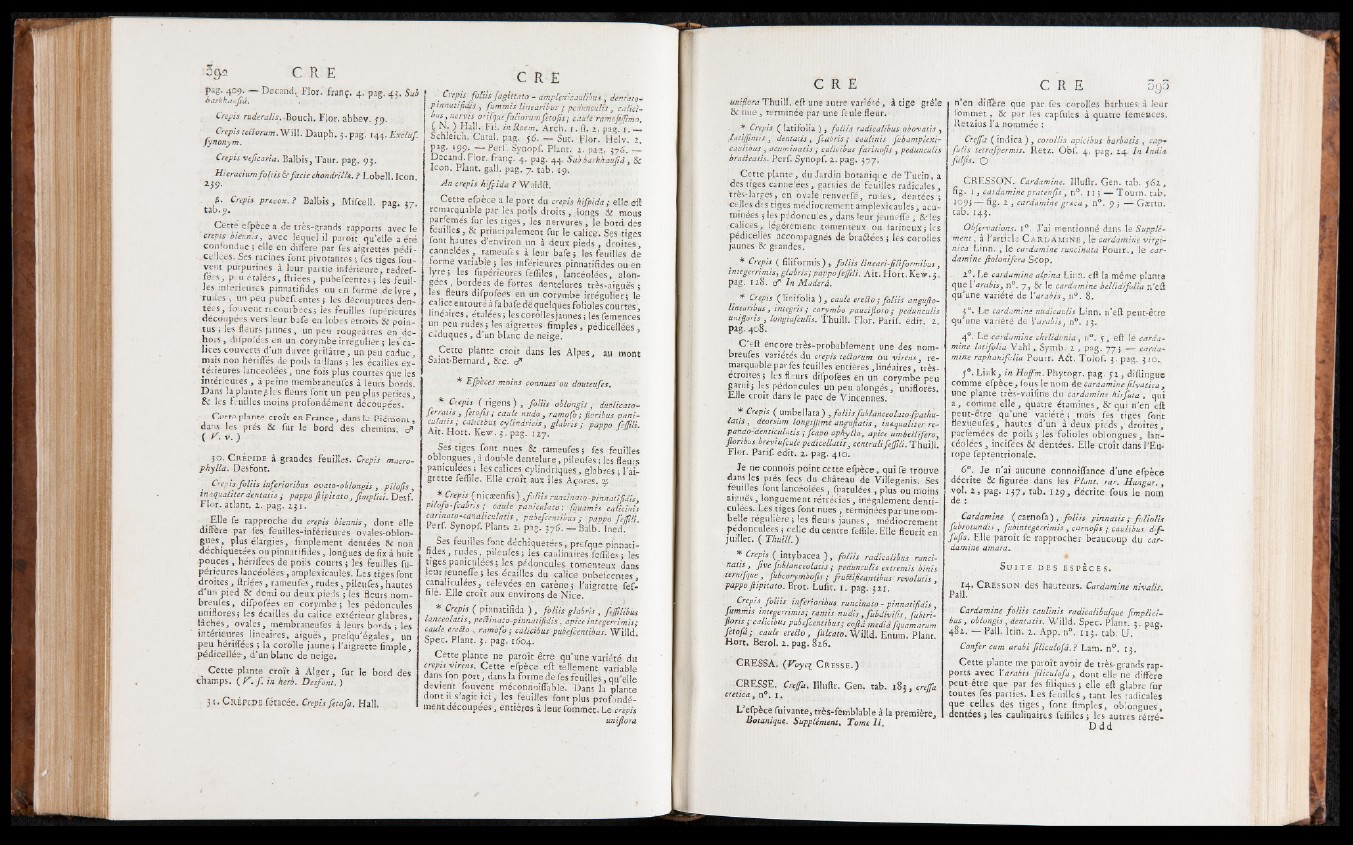 392 C R E
pag. 409. — Decand. Flor. franç. 4. pag. 43. Sub
barkhausiâ.
Crepis ruderalis. Bouch. Flor. abbev. 59.
Crepis tectorum. Will. Dauph. 3. pag. 144. Excluf.
fynonym.
Crepis veficaria. Balbis, Taur. pag. 93.
Hieracium foliis & facie chondrillæ. ? Lobell. Icon.
239.
β. Crepis præcox. ? Balbis, Mifcell. pag. 37,
tab. 9.
Cette efpèce a de très-grands rapports avec le
crepis biennis, avec lequel il paroît qu'elle a été
confondue ; elle en diffère par fes aigrettes pédi-
cellées. Ses racines font pivotantes ; fes tiges fou-
vent purpurines à leur partie inférieure, redref-
fées, peu étalées, ftriées, pubefcentes ; les feuil-
les inférieures pinnatifides ou en forme de lyre,
rudes, un peu pubefcentes ; les découpures den-
tées, fouvent recourbées ; les feuilles fupérieures
découpées vers leur bafe en lobes étroits & poin-
tus ; les fleurs jaunes, un peu rougeâtres en de-
hors, difpofées en un corymbe irrégulier ; les ca-
lices couverts d'un duvet grifâtre, un peu caduc,
mais non hériffés de poils faillans ; les écailles ex-
térieures lancéolées, une fois plus courtes que les
intérieures, à peine membraneufes à leurs bords.
Dans la plante β les fleurs font un peu plus petites,
& les feuilles moins profondément découpées.
Cette plante croît en France, dans le Piémont,
dans les prés & fur le bord des chemins. ♂
( V. v. )
30. CRÉPIDE à grandes feuilles. Crepis macro-
phylla. Desfont.
Crepis foliis inferioribus ovato-oblongis, pilofis,
inæqualiter dentatis ; pappo ftipitato, fimplici. Desf.
Flor. atlant. 2. pag. 231.
Elle fe rapproche du crepis biennis, dont elle
diffère par fes feuilles inférieures ovales-oblon-
gues, plus élargies, fimplement dentées & non
déchiquetées ou pinnatifides, longues de fix à huit
pouces, hériffées de poils courts ; les feuilles fu-
périeures lancéolées, amplexicaules. Les tiges font
droites, ftriées, rameufes, rudes, pileufes, hautes
d'un pied & demi ou deux pieds ; les fleurs nom-
breufes, difpofées en corymbe ; les pédoncules
uniflores ; les écailles du calice extérieur glabres,
lâches, ovales, membraneufes à leurs bords ; les
intérieures linéaires, aiguës, prefqu'égales, un
peu hériffées ; la corolle jaune ; l'aigrette fimple,
pédicellée, d'un blanc de neige.
Cette plante croît à Alger, fur le bord des
champs. ( V. f. in herb. Desfont. )
31. CRÉPIDE fétacée. Crepis fetofa. Hall.
C R E
Crepis foliis fagittato-amplexicaulibus, dentato-
pinnatifidis, fummis linearibus ; pedunculis, calici-
bus, nervis orisque foliorum fetofis ; caule ramofiffimo.
( N. ) Hall. Fil. in Roem. Arch. 1. ft. 2. pag. 1. —
Schleich. Catal. pag. 56. — Sut. Flor. Helv. 2.
pag. 199. — Perf. Synopf. Plant. 2. pag. 376. —
Decand. Flor. franç. 4. pag. 44. Sub barkhaufiâ, &
Icon. Plant. gall. pag. 7. tab. 19.
An crepis hifpida ? Waldft.
Cette efpèce a le port du crepis hifpida ; elle eft
remarquable par les poils droits, longs & mous
parfemés fur les tiges, les nervures, le bord des
feuilles, & principalement fur le calice. Ses tiges
font hautes d'environ un à deux pieds, droites,
cannelées, rameufes à leur bafe ; les feuilles de
forme variable ; les inférieures pinnatifides ou en
lyre ; les fupérieures feffiles, lancéolées, alon-
gées, bordées de fortes dentelures très-aiguës ;
les fleurs difpofées en un corymbe irrégulier ; le
calice entouré à fa bafe de quelques folioles courtes,
linéaires, étalées ; les corolles jaunes ; les femences
un peu rudes ; les aigrettes fimples, pédicellées,
caduques, d'un blanc de neige.
Cette plante croît dans les Alpes, au mont
Saint-Bernard, &c. ♂
* Efpèces moins connues ou douteufes.
* Crepis ( rigens ), foliis oblongis, duplicato-
ferratis, fetofis ; caule nudo, ramofo ; floribus pani-
culatis ; calicibus cylindricis, glabris ; pappo feffili.
Ait. Hort. Kew. 3. pag. 127.
Ses tiges font nues & rameufes ; fes feuilles
oblongues, à double dentelure, pileufes ; les fleurs
paniculées ; les calices cylindriques, glabres ; l'ai-
grette feffile. Elle croît aux îles Açores. ♃
* Crepis ( nicæenfis ), foliis runcinato-pinnatifidis,
pilofo-fcabris ; caule paniculato ; fquamis calicinis
carinato-canaliculatis, pubefcentibus ; pappo feffili.
Perf. Synopf. Plant. 2. pag. 376. — Balb. Ined.
Ses feuilles font déchiquetées, prefque pinnati-
fides, rudes, pileufes ; les caulinaires feffiles ; les
tiges paniculées ; les pédoncules tomenteux dans
leur jeuneffe ; les écailles du calice pubefcentes,
canaliculées, relevées en carène ; l'aigrette fef-
file. Elle croît aux environs de Nice.
* Crepis ( pinnatifida ), foliis glabris, feffilibus
lanceolatis, pectinato-pinnatifidis, apice integerrimis ;
caule erecto, ramofo ; calicibus pubefcentibus. Willd.
Spec. Plant. 3. pag. 1604.
Cette plante ne paroît être qu'une variété du
crepis virens. Cette efpèce eft tellement variable
dans fon port, dans la forme de fes feuilles, qu'elle
devient fouvent méconnoiffable. Dans la plante
dont il s'agit ici, les feuilles font plus profondé-
ment découpées, entières à leur fommet. Le crepis
uniflora
C R E
uniflora Thuill. eft une autre variété, à tige grêle
& nue, terminée par une feule fleur.
* Crepis ( latifolia ), foliis radicalibus obovatis,
latiffimis, dentatis, fcabris ; caulinis fubamplexi-
caulibus, acuminatis ; calicibus farinofis, pedunculis
bracteatis. Perf. Synopf. 2. pag. 377.
Cette plante, du Jardin botanique de Turin, a
des tiges cannelées, garnies de feuilles radicales,
très-larges, en ovale renverfé, rudes, dentées ;
celles des tiges médiocrement amplexicaules, acu-
minées ; les pédoncules, dans leur jeuneffe, & les
calices, légèrement tomenteux ou farineux ; les
pédicelles accompagnés de bractées ; les corolles
jaunes & grandes.
* Crepis ( filiformis ), foliis lineari-filiformibus,
integerrimis, glabris ; pappo feffili. Ait. Hort. Kew. 3.
pag. 128. ♂ In Maderâ.
* Crepis ( linifolia ), caule erecto ; foliis angufto-
linearibus, integris ; corymbo paucifloro ; pedunculis
unifloris, longiufculis. Thuill. Flor. Parif. édit. 2.
pag. 408.
C'eft encore très-probablement une des nom-
breufes variétés du crepis tectorum ou virens, re-
marquable par fes feuilles entières, linéaires, très-
étroites ; les fleurs difpofées en un corymbe peu
garni ; les pédoncules un peu alongés, uniflores.
Elle croît dans le parc de Vincennes.
* Crepis ( umbellata ), foliis fublanceolato-fpathu-
latis, deorfum longiffimè anguftatis, inæqualiter re-
pando-denticulatis ; fcapo aphyllo, apice umbellifero,
floribus breviufculè pedicellatis, centrali feffili. Thuill.
Flor. Parif. édit. 2. pag. 410.
Je ne connois point cette efpèce, qui fe trouve
dans les prés fecs du château de Villegenis. Ses
feuilles font lancéolées, fpatulées, plus ou moins
aiguës, longuement rétrécies, inégalement denti-
culées. Les tiges font nues, terminées par une om-
belle régulière ; les fleurs jaunes, médiocrement
pédonculées ; celle du centre feffile. Elle fleurit en
juillet. ( Thuill. )
* Crepis ( intybacea ), foliis radicalibus runci-
natis, five fublanceolatis ; pedunculis extremis binis
ternifque, fubcorymbofis ; fructificantibus revolutis,
pappo ftipitato. Brot. Lufit. 1. pag. 321.
Crepis foliis inferioribus runcinato-pinnatifidis,
fummis integerrimis ; ramis nudis, fubdivifis, fubtri-
floris ; calicibus pubefcentibus ; coftâ mediâ fquamarum
fetofâ ; caule erecto, fulcato. Willd. Enum. Plant.
Hort. Berol. 2. pag. 826.
CRESSA. ( Voyez CRESSE. )
CRESSE. Creffa. Illuftr. Gen. tab. 183, creffa
cretica, n°. 1.
L'efpèce fuivante, très-femblable à la première,
Botanique. Supplément. Tome II.
C R E 393
n'en diffère que par fes corolles barbues à leur
fommet, & par fes capfules à quatre femences.
Retzius l'a nommée :
Creffa ( indica ), corollis apicibus barbatis, cap-
fulis tetrafpermis. Retz. Obf. 4. pag. 24. In Indiæ
falfis. ☉
CRESSON. Cardamine. Illuftr. Gen. tab. 562,
fig. 1, cardamine pratenfis, n°. 11 ; — Tourn. tab.
109 ; — fig. 2, cardamine græca, n°. 9 ; — Gærtn.
tab. 143.
Obfervations. 1°. J'ai mentionné dans le Supplé-
ment, à l'article CARDAMINE, le cardamine virgi-
nica Linn., le cardamine runcinata Pourr., le car-
damine ftolonifera Scop.
2°. Le cardamine alpina Lin. eft la même plante
que l'arabis, n°. 7, & le cardamine bellidifolia n'eft
qu'une variété de l'arabis, n°. 8.
3°. Le cardamine nudicaulis Linn. n'eft peut-être
qu'une variété de l'arabis, n°. 13.
4°. Le cardamine chelidonia, n°. 5, eft le carda-
mine latifolia Vahl, Symb. 2, pag. 77 ; — carda-
mine raphanifolia Pourr. Act. Tolof. 3. pag. 310.
5°. Link, in Hoffm. Phytogr. pag. 52, diftingue
comme efpèce, fous le nom de cardamine fylvatica,
une plante très-voifine du cardamine hirfuta, qui
a, comme elle, quatre étamines, & qui n'en eft
peut-être qu'une variété ; mais fes tiges font
flexueufes, hautes d'un à deux pieds, droites,
parfemées de poils ; les folioles oblongues, lan-
céolées, incifées & dentées. Elle croît dans l'Eu-
rope feptentrionale.
6°. Je n'ai aucune connoiffance d'une efpèce
décrite & figurée dans les Plant. rar. Hungar.,
vol. 2, pag. 137, tab. 129, décrite fous le nom
de :
Cardamine ( carnofa ), foliis pinnatis ; foliolis
fubrotundis, fubintegerrimis, carnofis ; caulibus dif-
fufis. Elle paroît fe rapprocher beaucoup du car-
damine amara.
SUITE DES ESPÈCES.
14. CRESSON des hauteurs. Cardamine nivalis.
Pall.
Cardamine foliis caulinis radicalibufque fimplici-
bus, oblongis, dentatis. Willd. Spec. Plant. 3. pag.
482. — Pall. Itin. 2. App. n°. 113. tab. U.
Confer cum arabi filiculofâ. ? Lam. n°. 13.
Cette plante me paroît avoir de très-grands rap-
ports avec l'arabis filiculofa, dont elle ne diffère
peut-être que par fes filiques ; elle eft glabre fur
toutes fes parties. Les feuilles, tant les radicales
que celles des tiges, font fimples, oblongues,
dentées ; les caulinaires feffiles ; les autres rétré-
D d d